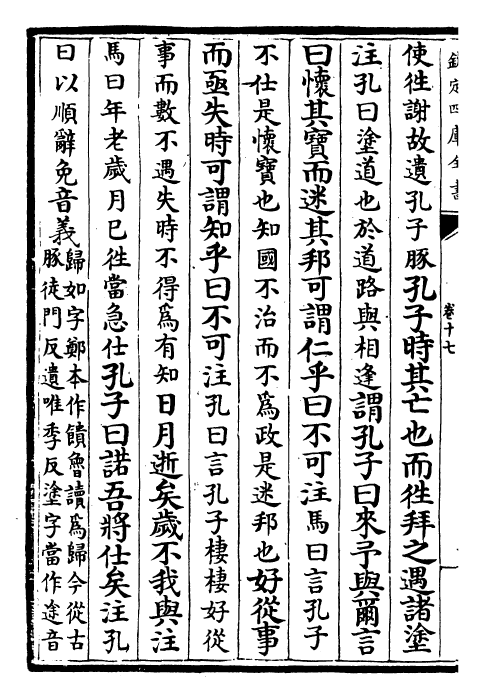 欽定四庫全書
卷十七
使徃謝故遺孔子豚孔子時其亡也而徃拜之遇諸塗
注孔曰塗道也於道路與相逢謂孔子曰來予與爾言
曰懷其寶而迷其邦可謂仁乎曰不可注馬曰言孔子
不仕是懷寶也知國不治而不為政是迷邦也好從事
而亟失時可謂知乎曰不可注孔曰言孔子棲棲好從
事而數不遇失時不得為有知日月逝矣歲不我與注
馬曰年老歲月已徃當急仕孔子曰諾吾將仕矣注孔
曰以順辭免音義歸如字鄭本作饋魯讀為歸今從古
豚徒門反遺唯季反塗字當作途音